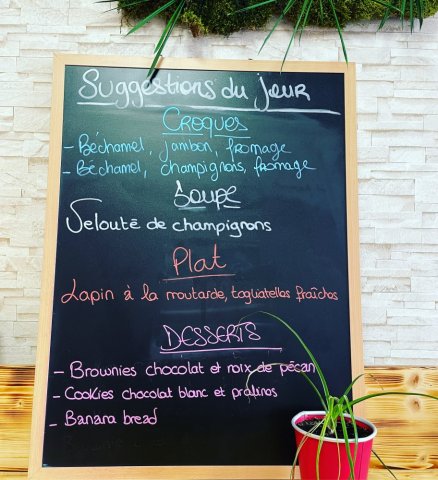 Suggestions du jour
CROQUES
- Béchamel, jambon, fromage
- Béchamel, champignons, fromage
SOUPE
Velouté de champignons
Plat
Lapin à la moutarde, tagliatelles fraîches
DESSERTS
- Brownies chocolat et noix de pécan
- Cookies chocolat blanc et pralinos
- Banana bread